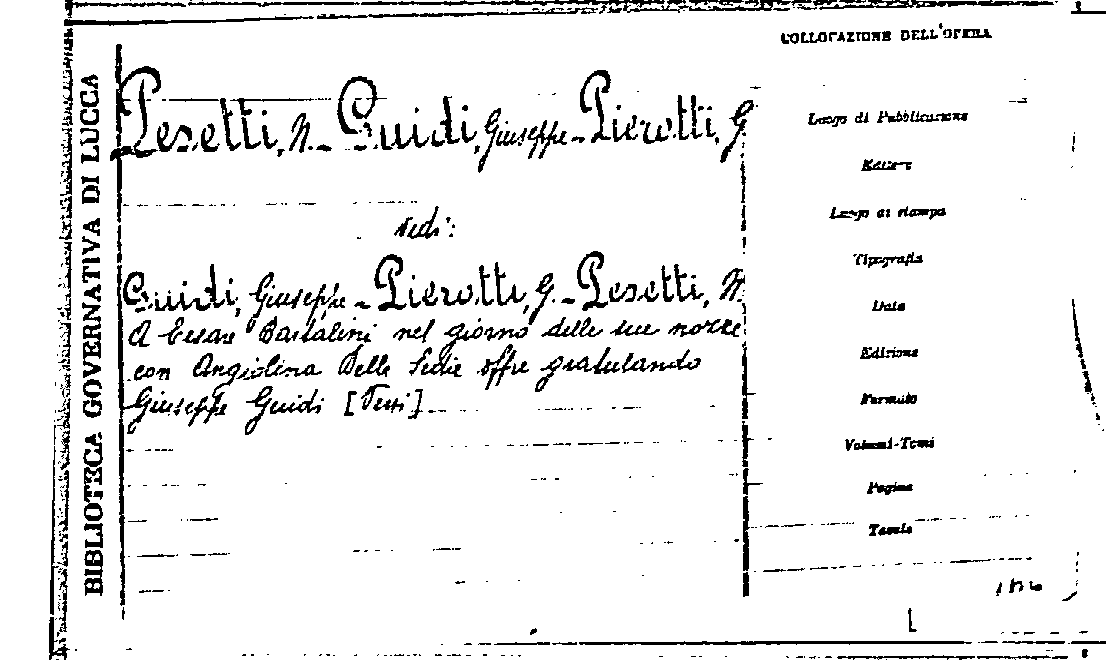 BIBLIOTECA GOVERNATIVA DI LUCCA
COLLOCAZIONE DELL'OPERA
Pesetti, N. - Guidi, Giuseppe - Pierotti, G
Vedi:
Guidi, Giuseppe - Pierotti, G. - Pesetti, N.
A Cesare Barsalini nel giorno delle sue nozze
con Angiolina Delle Sedie offre gratulando
Giuseppe Guidi [Versi]
Luogo di Pubblicazione
Editore
Luogo di stampa
Tipografia
Data
Edizione
Formato
Volumi-Tomi
Pagine
Tavole